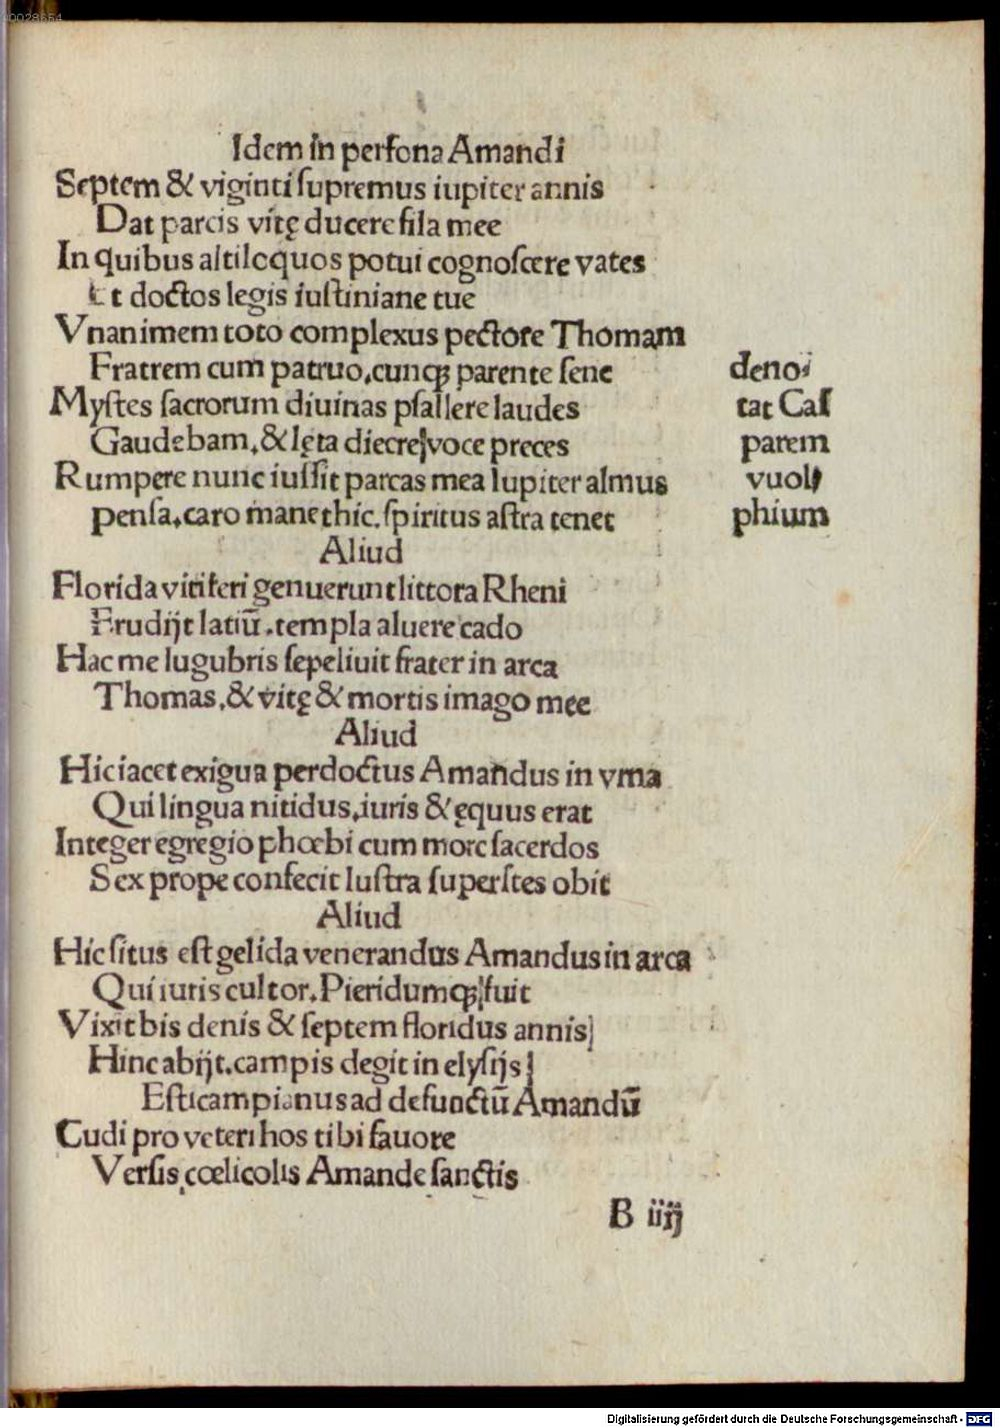 0028654
Idem in persona Amandi
Septem & viginti supremus iupiter annis
Dat parcis vitę ducere fila mee
In quibus altiloquos potui cognoscere vates
Et doctos legis iustiniane tue
Vnanimem toto complexus pectore Thomam
Fratrem cum patruo, cunqȝ parente sene
Mystes sacrorum diuinas psallere laudes
Gaudebam, & lęta dicere voce preces
Rumpere nunc iussit parcas mea Iupiter almus
pensa, caro manet hic. spiritus astra tenet
denotat Cas
parem
vuol
phium
Aliud
Florida vitiferi genuerunt littora Rheni
Erudijt latiū, templa aluere cado
Hac me lugubris sepeliuit frater in arca
Thomas, & vitę & mortis imago mee
Aliud
Hic iacet exigua perdoctus Amandus in vrna
Qui lingua nitidus, iuris & ęquus erat
Integer egregio phœbi cum more sacerdos
Sex prope confecit lustra superstes obit
Aliud
Hic situs est gelida venerandus Amandus in arca
Qui iuris cultor, Pieridumqȝ fuit
Vixit bis denis & septem floridus annis
Hinc abijt, campis degit in elysijs
Esticampianus ad defunctū Amandū
Cudi pro veteri hos tibi fauore
Versis, cœlicolis Amande sanctis
B iiij
Digitalisierung gefördert durch die Deutsche Forschungsgemeinschaft - DFG